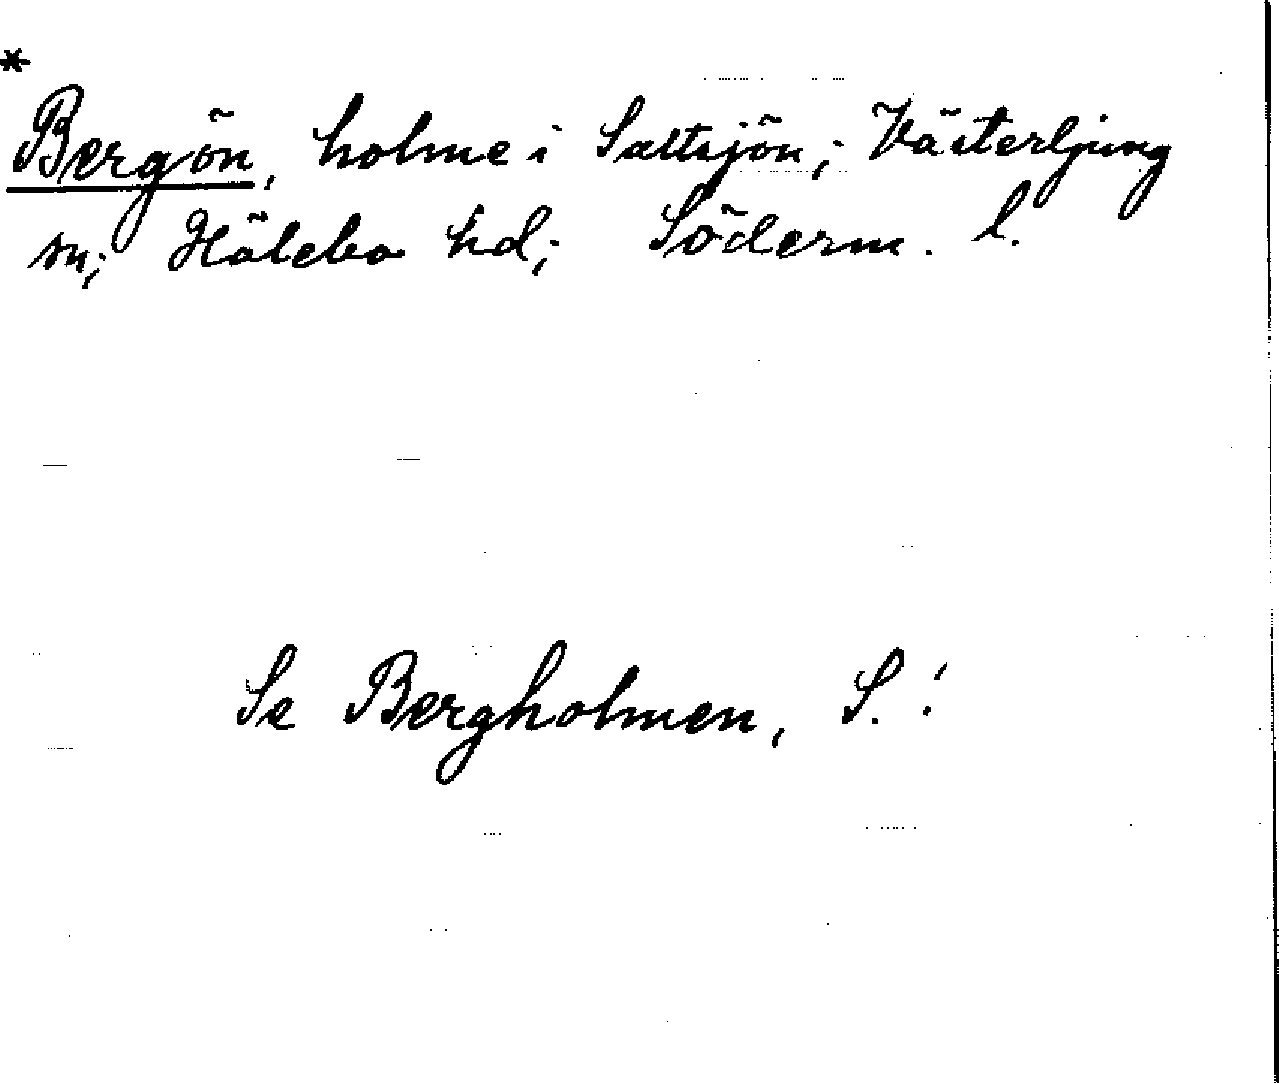 *
Bergön, holme i Saltsjön; Västerljung
sn; Hölebo hd; Söderm. l.
Se Bergholmen, S.!